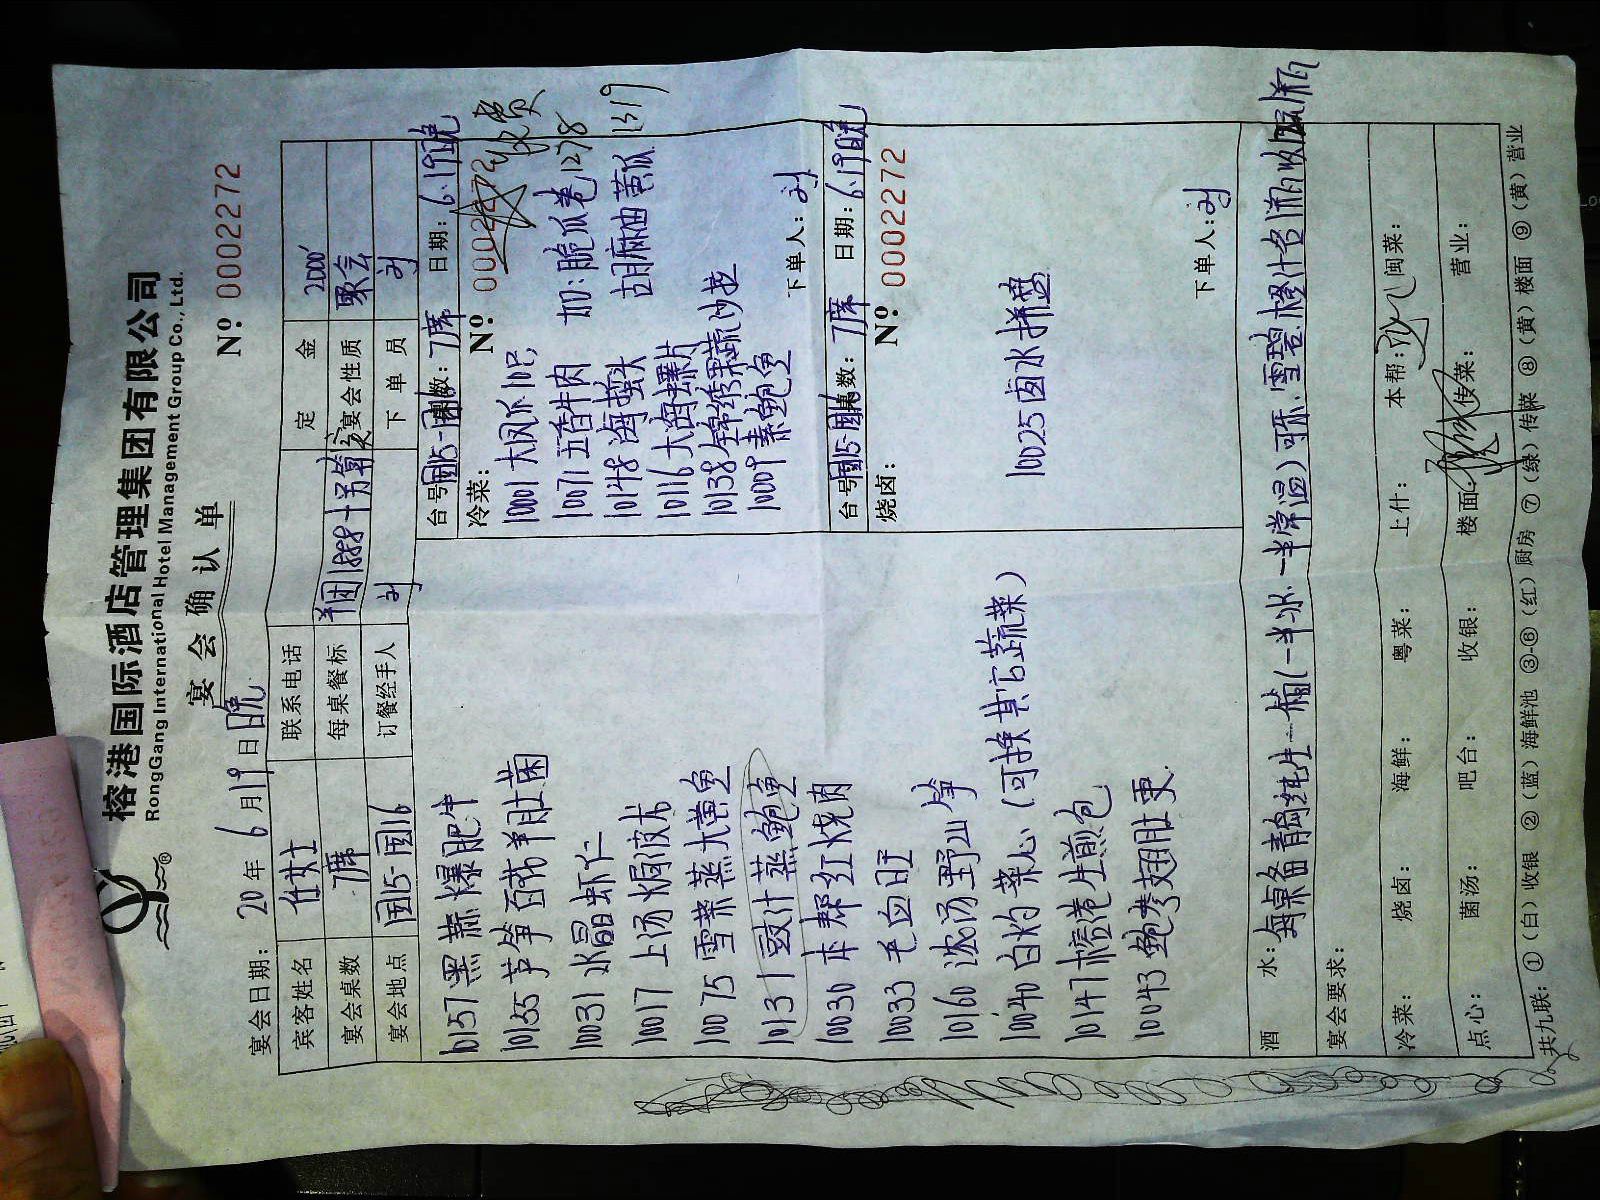 榕港国际酒店管理集团有限公司
RongGang International Hotel Management Group Co., Ltd.
宴会确认单
宴会日期： 20 年 6 月 19 日 晚 Nº 0002272
宾客姓名 任女士 联系电话 定金 2000
宴会桌数 7席 每桌餐标 宴会性质 聚会
宴会地点 国15-国16 订餐经手人 刘 下单员 刘
10157 黑蒜爆肥牛
10155 芦笋百花羊肚菌
10031 水晶虾仁
10017 上汤焗波龙
10075 雪菜蒸大黄鱼
10131 豉汁蒸鲍鱼
10030 本帮红烧肉
10033 毛血旺
10160 浓汤野山笋
10040 白灼菜心（可换其它蔬菜）
10147 榕港生煎包
10043 鲍参翅肚更
台号 国15-国16 桌数：7席 日期：6.19晚
冷菜： Nº 0002272
10001 大凤爪10只,
10071 五香牛肉 加：脆瓜卷1278
10148 海蜇头 胡麻油黄瓜 1319
10116 大海螺片
10138 锦绣果蔬沙拉
10009 素鲍鱼
下单人：刘
台号 国15-国16 桌数：7席 日期：6.19晚
烧卤： Nº 0002272
10025 卤水拼盘
下单人：刘
酒水：每桌备青岛纯生一箱（一半冰.一半常温）可乐.雪碧.橙汁各
宴会要求：
冷菜： 烧卤： 海鲜： 粤菜： 上什： 本帮： 闽菜：
点心： 菌汤： 吧台： 收银： 楼面： 传菜： 营业：
共九联：①（白）收银 ②（蓝）海鲜池 ③-⑥（红）厨房 ⑦（绿）传菜 ⑧（黄）楼面 ⑨（黄）营业